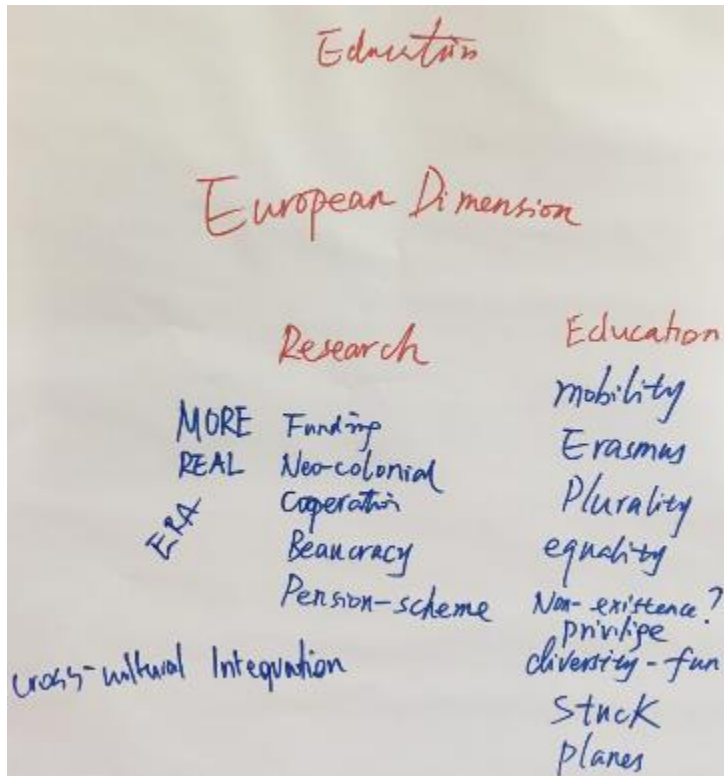 Education
European Dimension
Research
MORE Funding
REAL Neo-colonial
ERA Cooperation
Beaucracy
Pension-scheme
cross-cultural Integration
Education
mobility
Erasmus
Plurality
equality
Non-existence?
privilige
diversity-fun
Stuck
planes